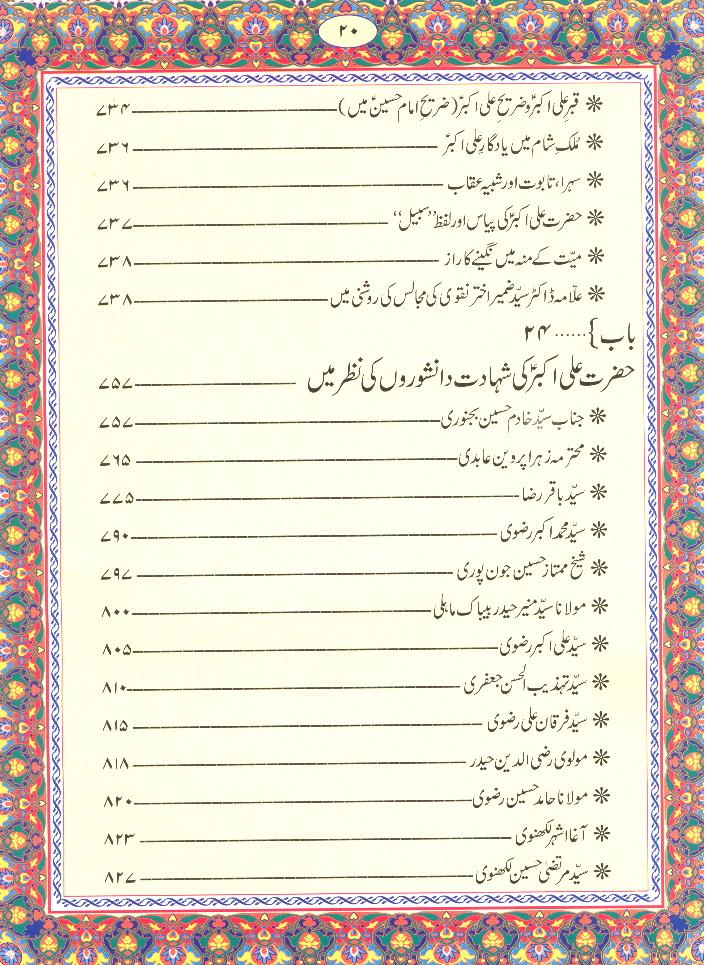 ۲۰
❋ قبرِعلی اکبرؑ و ضریحِ علی اکبرؑ (ضریحِ امام حسینؑ میں) ۷۳۴
❋ مُلکِ شام میں یادگارِ علی اکبرؑ ۷۳۶
❋ سہرا، تابوت اور شبیہِ عقاب ۷۳۶
❋ حضرت علی اکبرؑ کی پیاس اور لفظ ”سبیل“ ۷۳۷
❋ میّت کے منہ میں نگینے کا راز ۷۳۸
❋ علّامہ ڈاکٹر سیّد ضمیر اختر نقوی کی مجالس کی روشنی میں ۷۳۸
باب} ...... ۲۴
حضرت علی اکبرؑ کی شہادت دانشوروں کی نظر میں ۷۵۷
❋ جناب سیّد خادم حسین بجنوری ۷۵۷
❋ محترمہ زہرا پروین عابدی ۷۶۵
❋ سیّد باقر رضا ۷۷۵
❋ سیّد محمد اکبر رضوی ۷۹۰
❋ شیخ ممتاز حسین جون پوری ۷۹۷
❋ مولانا سیّد منیر حیدر بیباک ماہلی ۸۰۰
❋ سیّد علی اکبر رضوی ۸۰۵
❋ سیّد تہذیب الحسن جعفری ۸۱۰
❋ سیّد فرقان علی رضوی ۸۱۵
❋ مولوی رضی الدین حیدر ۸۱۸
❋ مولانا حامد حسین رضوی ۸۲۰
❋ آغا اشہر لکھنوی ۸۲۳
❋ سیّد مرتضیٰ حسین لکھنوی ۸۲۷